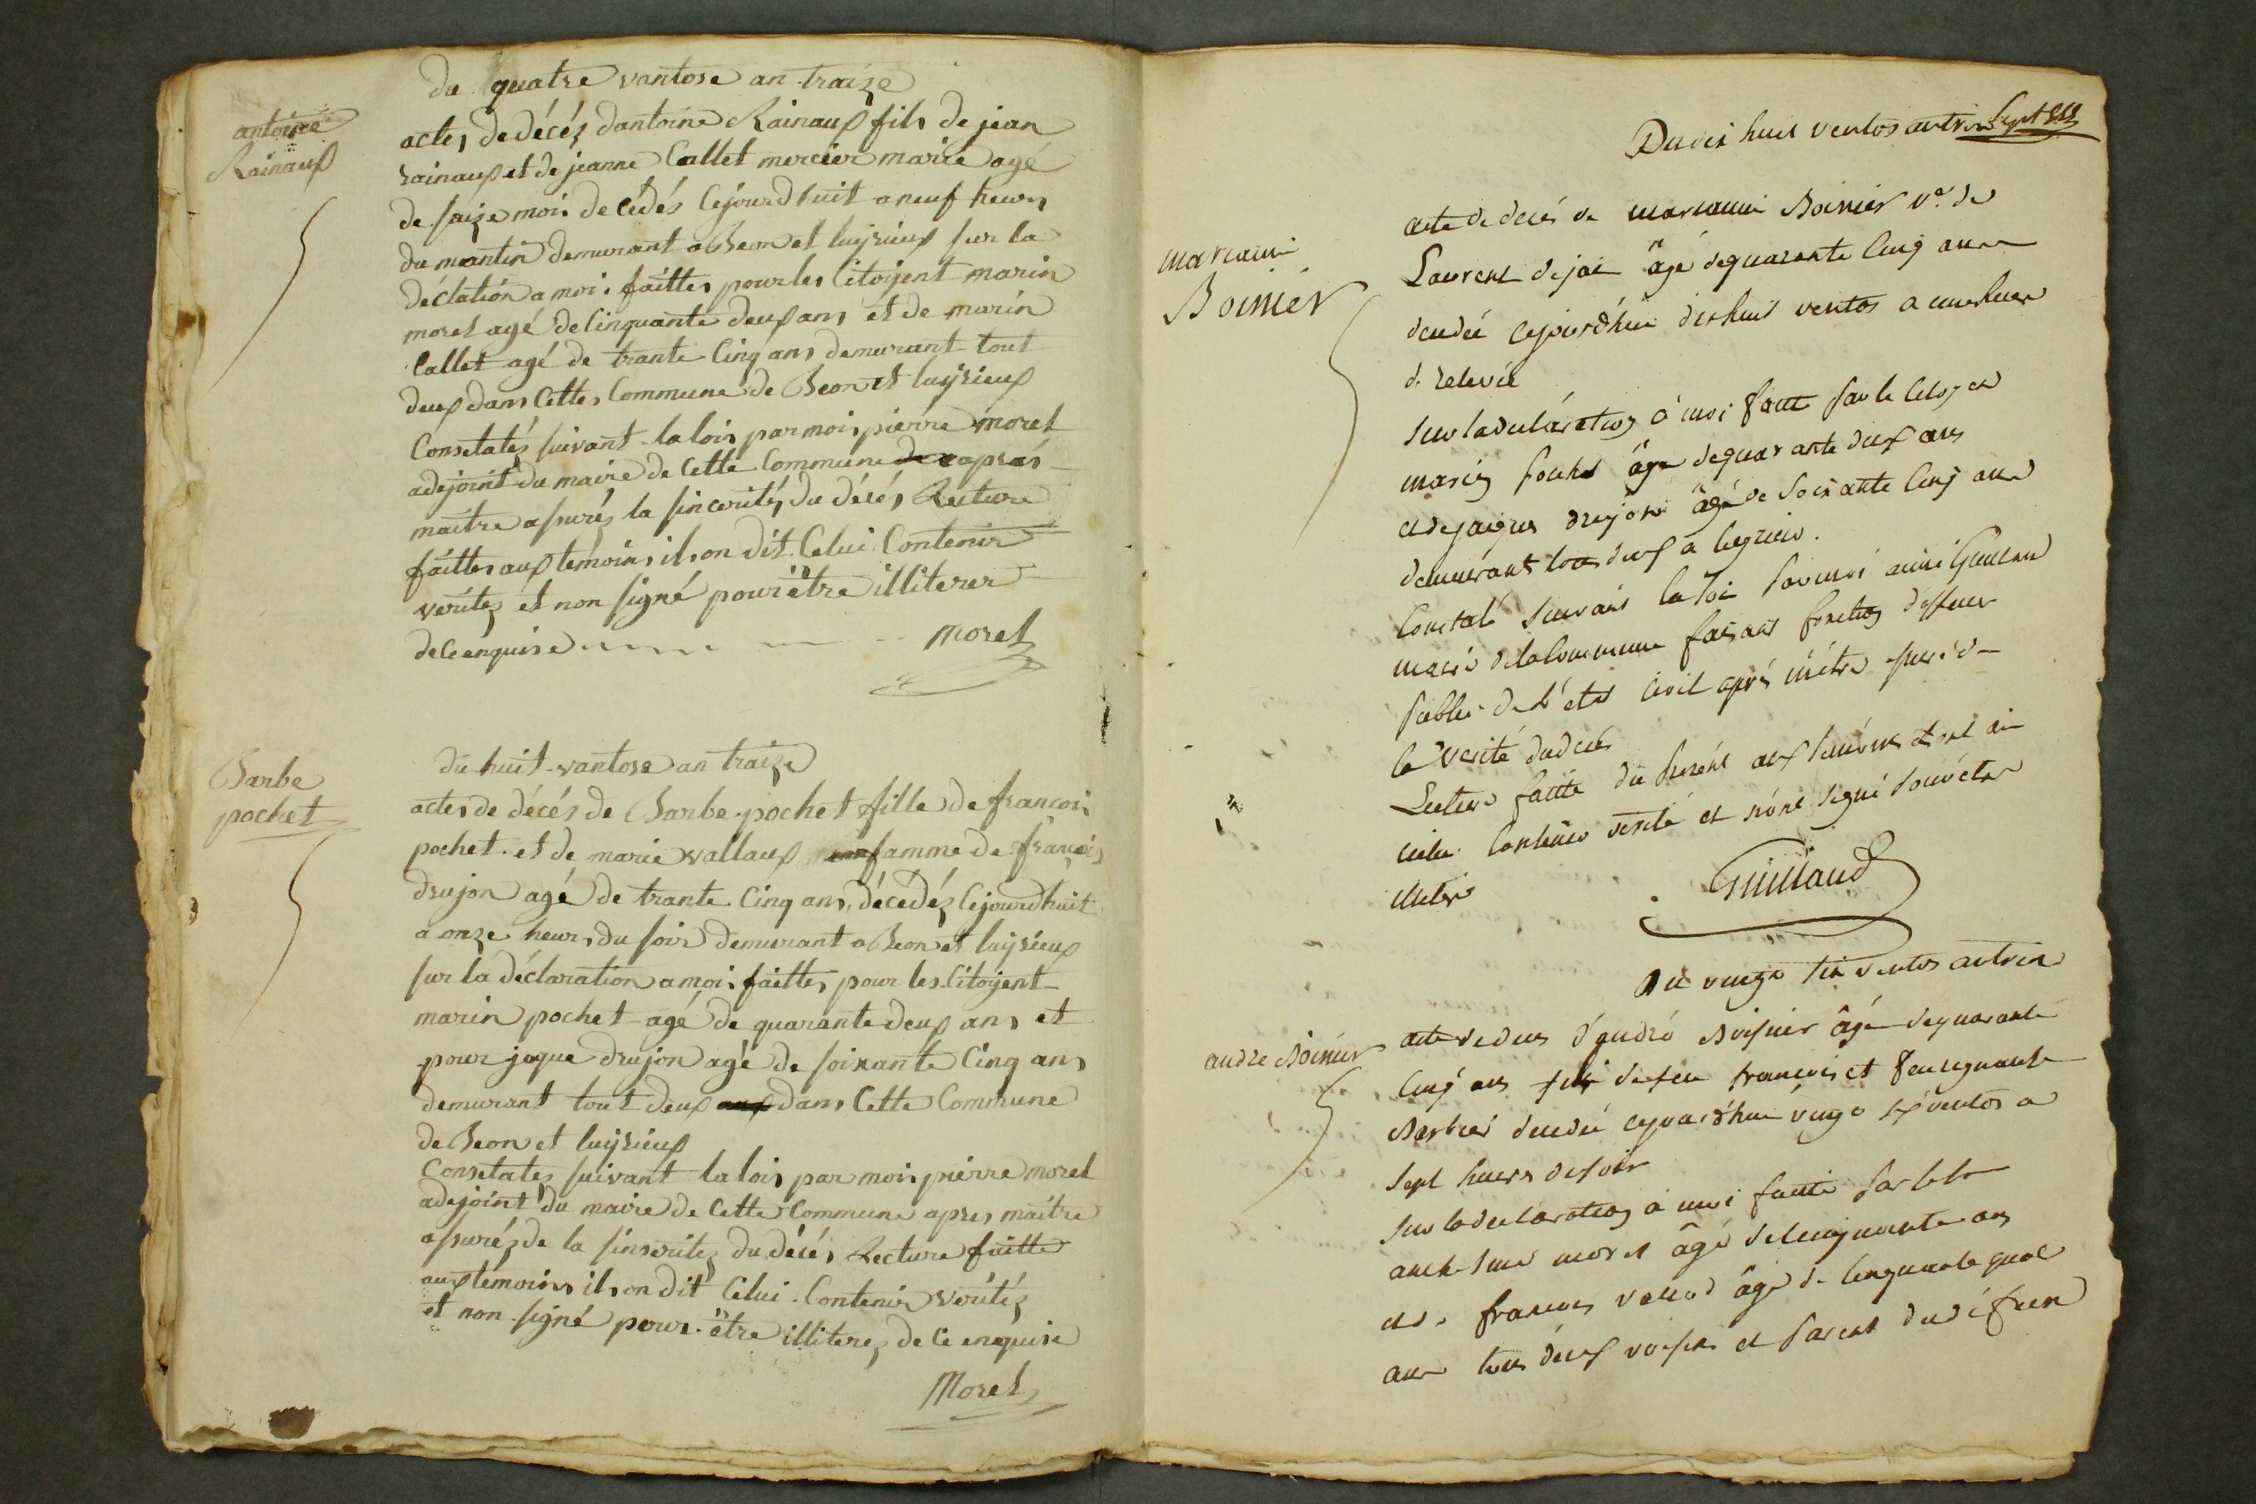 antoine
Rainaux
du quatre vantose an traize
actes de décéz dantoine Rainaux fils de jean
rainaux et de jeanne Callet mercier mairie agé
de saize mois decédés cejourdhuit a neuf heurs
du mantin demurant a Beon et luyrieux sur la
déclation a moi faittes pour les Citoyent marin
morel agé de Cinquante deux ans et de marin
Callet agé de trante Cinq ans demurant tout
deux dans Cettes Commune de Beon et luyrieux
Consetatéz suivant la lois par mois pierre morel
adejoint du maire de Cette Commune de apras
maitre assuréz la sinceritéz du décés Lecture
faittes aux temoins ils on dit Celui Contenir
veritéz et non signé pour être illiterer
de Ce enquise morel
Barbe
pochet
du huit vantose an traize
actes de décés de Barbe pochet fille de francois
pochet et de marie vallaux famme de francois
drujon agé de trante Cinq ans décedéz Cejourdhuit
a onze heurs du soir demurant a Beon et luyrieux
sur la déclaration a moi faittes pour les Citoyent
marin pochet agé de quarante deux ans et
pour jaque drujon agé de soixante Cinq ans
demurant tout deux aux dans Cette Commune
de Beon et luyrieux
Consetatez suivant la lois par mois pierre morel
adejoint du maire de Cette Commune apres maitre
assuréz de la sinseritez du décés Lecture faitte
aux temoins ils on dit Celui Contenir veritéz
et non signé pour être illiterez de Ce enquise
Morel
Sept
Du dix huit ventos antreize
marianne
Boinier
acte de decés de marianne Boinier ve. de
Laurent dejai âgé dequarante Cinq anne
decedée cejourdhui dix huit ventos a une heure
de relevée
sur la declaration à moi faitte par le Citoyen
marin pochet âge dequarante deux ans
et de jaques drujon âgé de Soixante Cinq anné
demeurant tous deux a luyrieu.
Constaté suivant la loi par moi aimé Guillaud
maire de la Commune faisant fonction dofficier
public de l'état Civil aprés m'être assuré de
la verité du decés
Lecture faitte du présent aux temoins et ont dit
icelui Contenir verité et n'ont signé pour être
illiteré
Guillaud
Du vingt six ventos antreize
andre Boinier
acte de deces d'andré Boisnier âgé dequarante
Cinq ans fils de feu francois et
Barbier decedé cejourdhui vingt six ventos a
sept heurs du soir
sur la declaration a moi faitte par le
morel âgé de Cinquante ans
et de francois vallod âgé de Cinquante quat
ans tous deux voisins et parent du défun